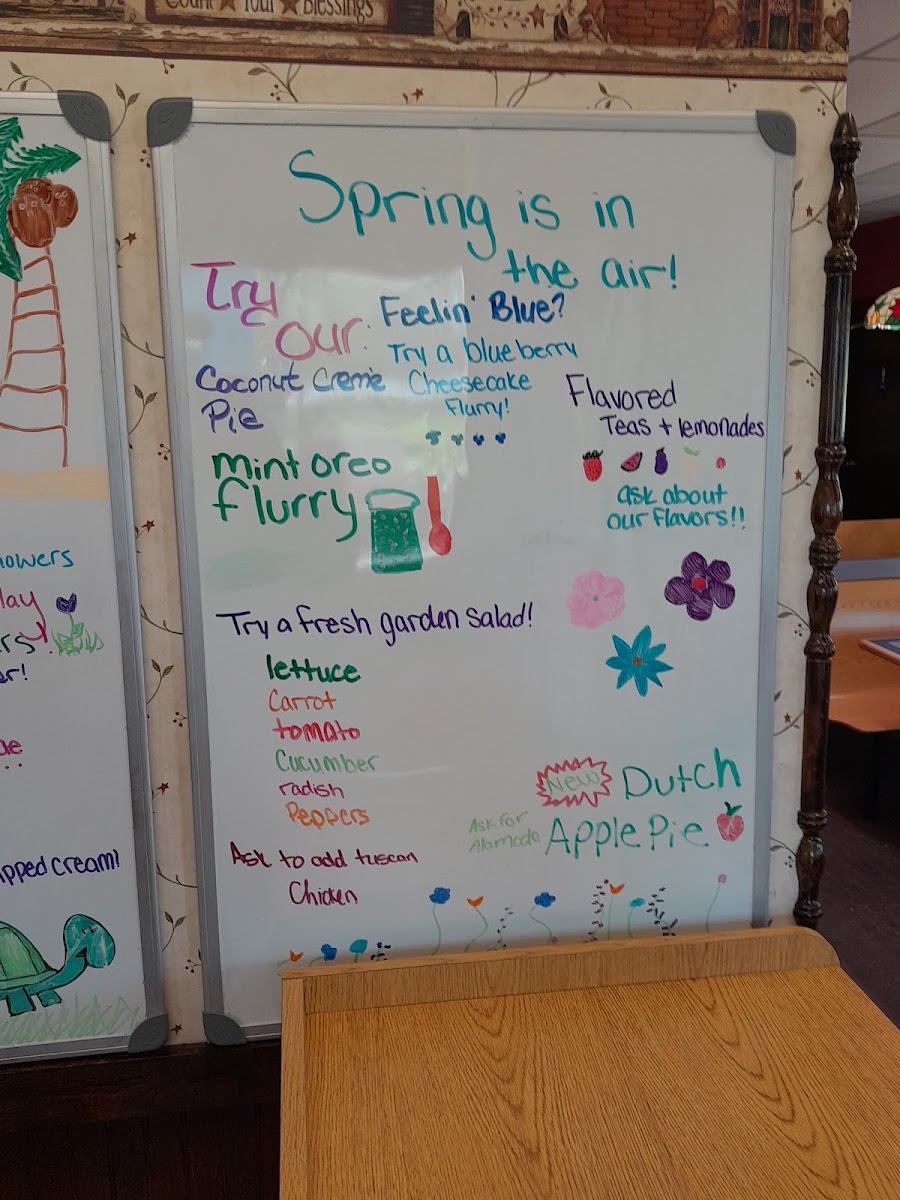 Count Your Blessings
Spring is in
the air!
Try
our:
Coconut Creme
Pie
Feelin' Blue?
Try a blueberry
Cheesecake
Flurry!
mint oreo
flurry
Flavored
Teas + lemonades
ask about
our flavors!!
Try a fresh garden salad!
lettuce
Carrot
tomato
Cucumber
radish
Peppers
Ask to add tuscan
Chicken
New Dutch
Apple Pie
Ask for
Alamode
lay